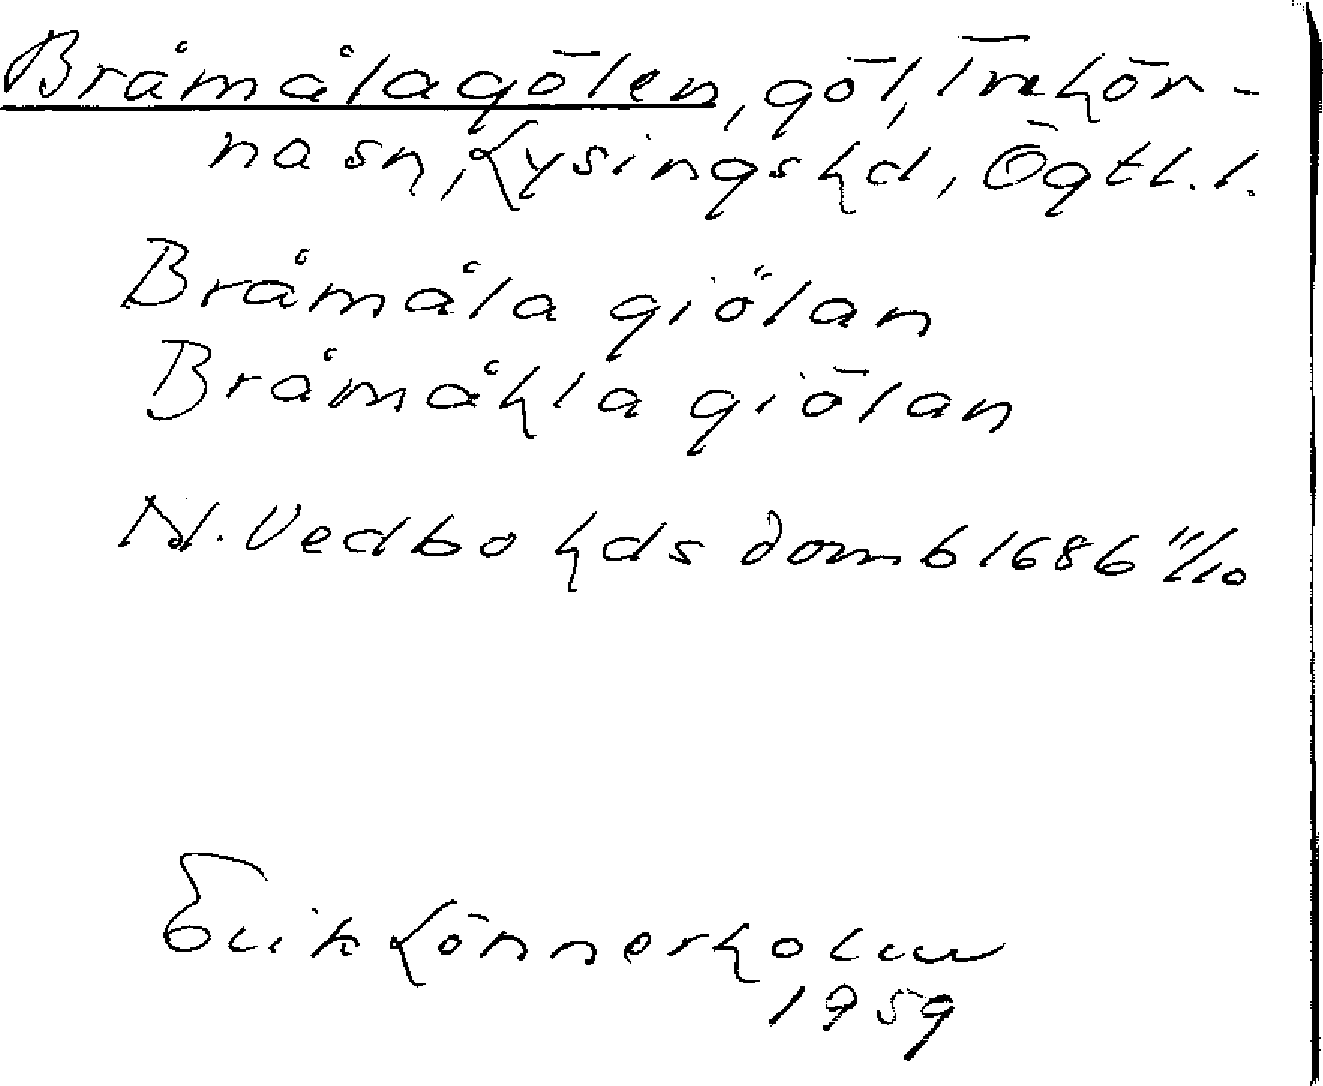 Bråmålagölen, göl, Trehör-
na sn, Lysings hd, Ögtl. l.
Bråmåla giölan
Bråmåhla giölan
N. Vedbo hds domb 1686 11/10
Erik Lönnerholm
1959